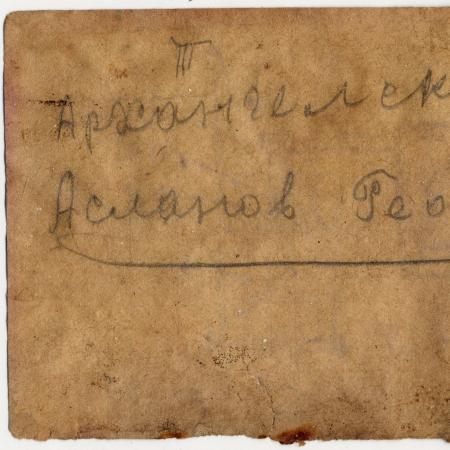 т
Архангельск
Асланов Гео